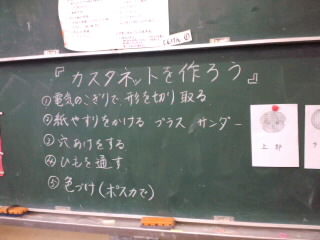 『カスタネットを作ろう』
①電気のこぎりで、形を切り取る
②紙やすりをかける プラス サンダー
③穴あけをする
④ひもを通す
⑤色づけ(ポスカで)
上部